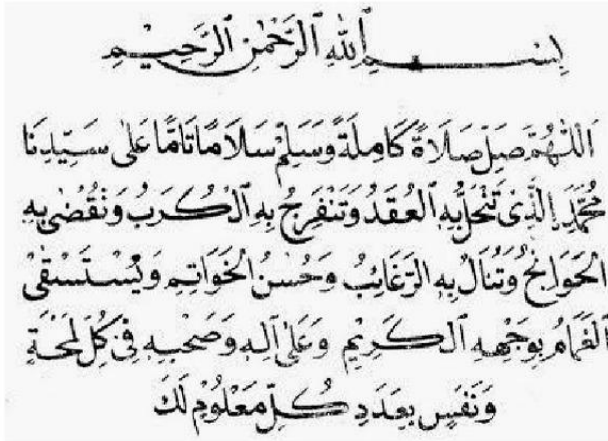 بِسْمِ ٱللّٰهِ ٱلرَّحْمٰنِ ٱلرَّحِيْمِ
اَللّٰهُمَّ صَلِّ صَلَاةً كَامِلَةً وَسَلِّمْ سَلَامًا تَامًّا عَلٰى سَيِّدِنَا
مُحَمَّدٍ الَّذِيْ تَنْحَلُّ بِهِ ٱلْعُقَدُ وَتَنْفَرِجُ بِهِ ٱلْكُرَبُ وَتُقْضٰى بِهِ
الْحَوَائِجُ وَتُنَالُ بِهِ الرَّغَائِبُ وَحُسْنُ الْخَوَاتِمِ وَيُسْتَسْقَى
الْغَمَامُ بِوَجْهِهِ ٱلْكَرِيْمِ وَعَلٰى اٰلِهِ وَصَحْبِهِ فِيْ كُلِّ لَمْحَةٍ
وَنَفَسٍ بِعَدَدِ كُلِّ مَعْلُوْمٍ لَكَ